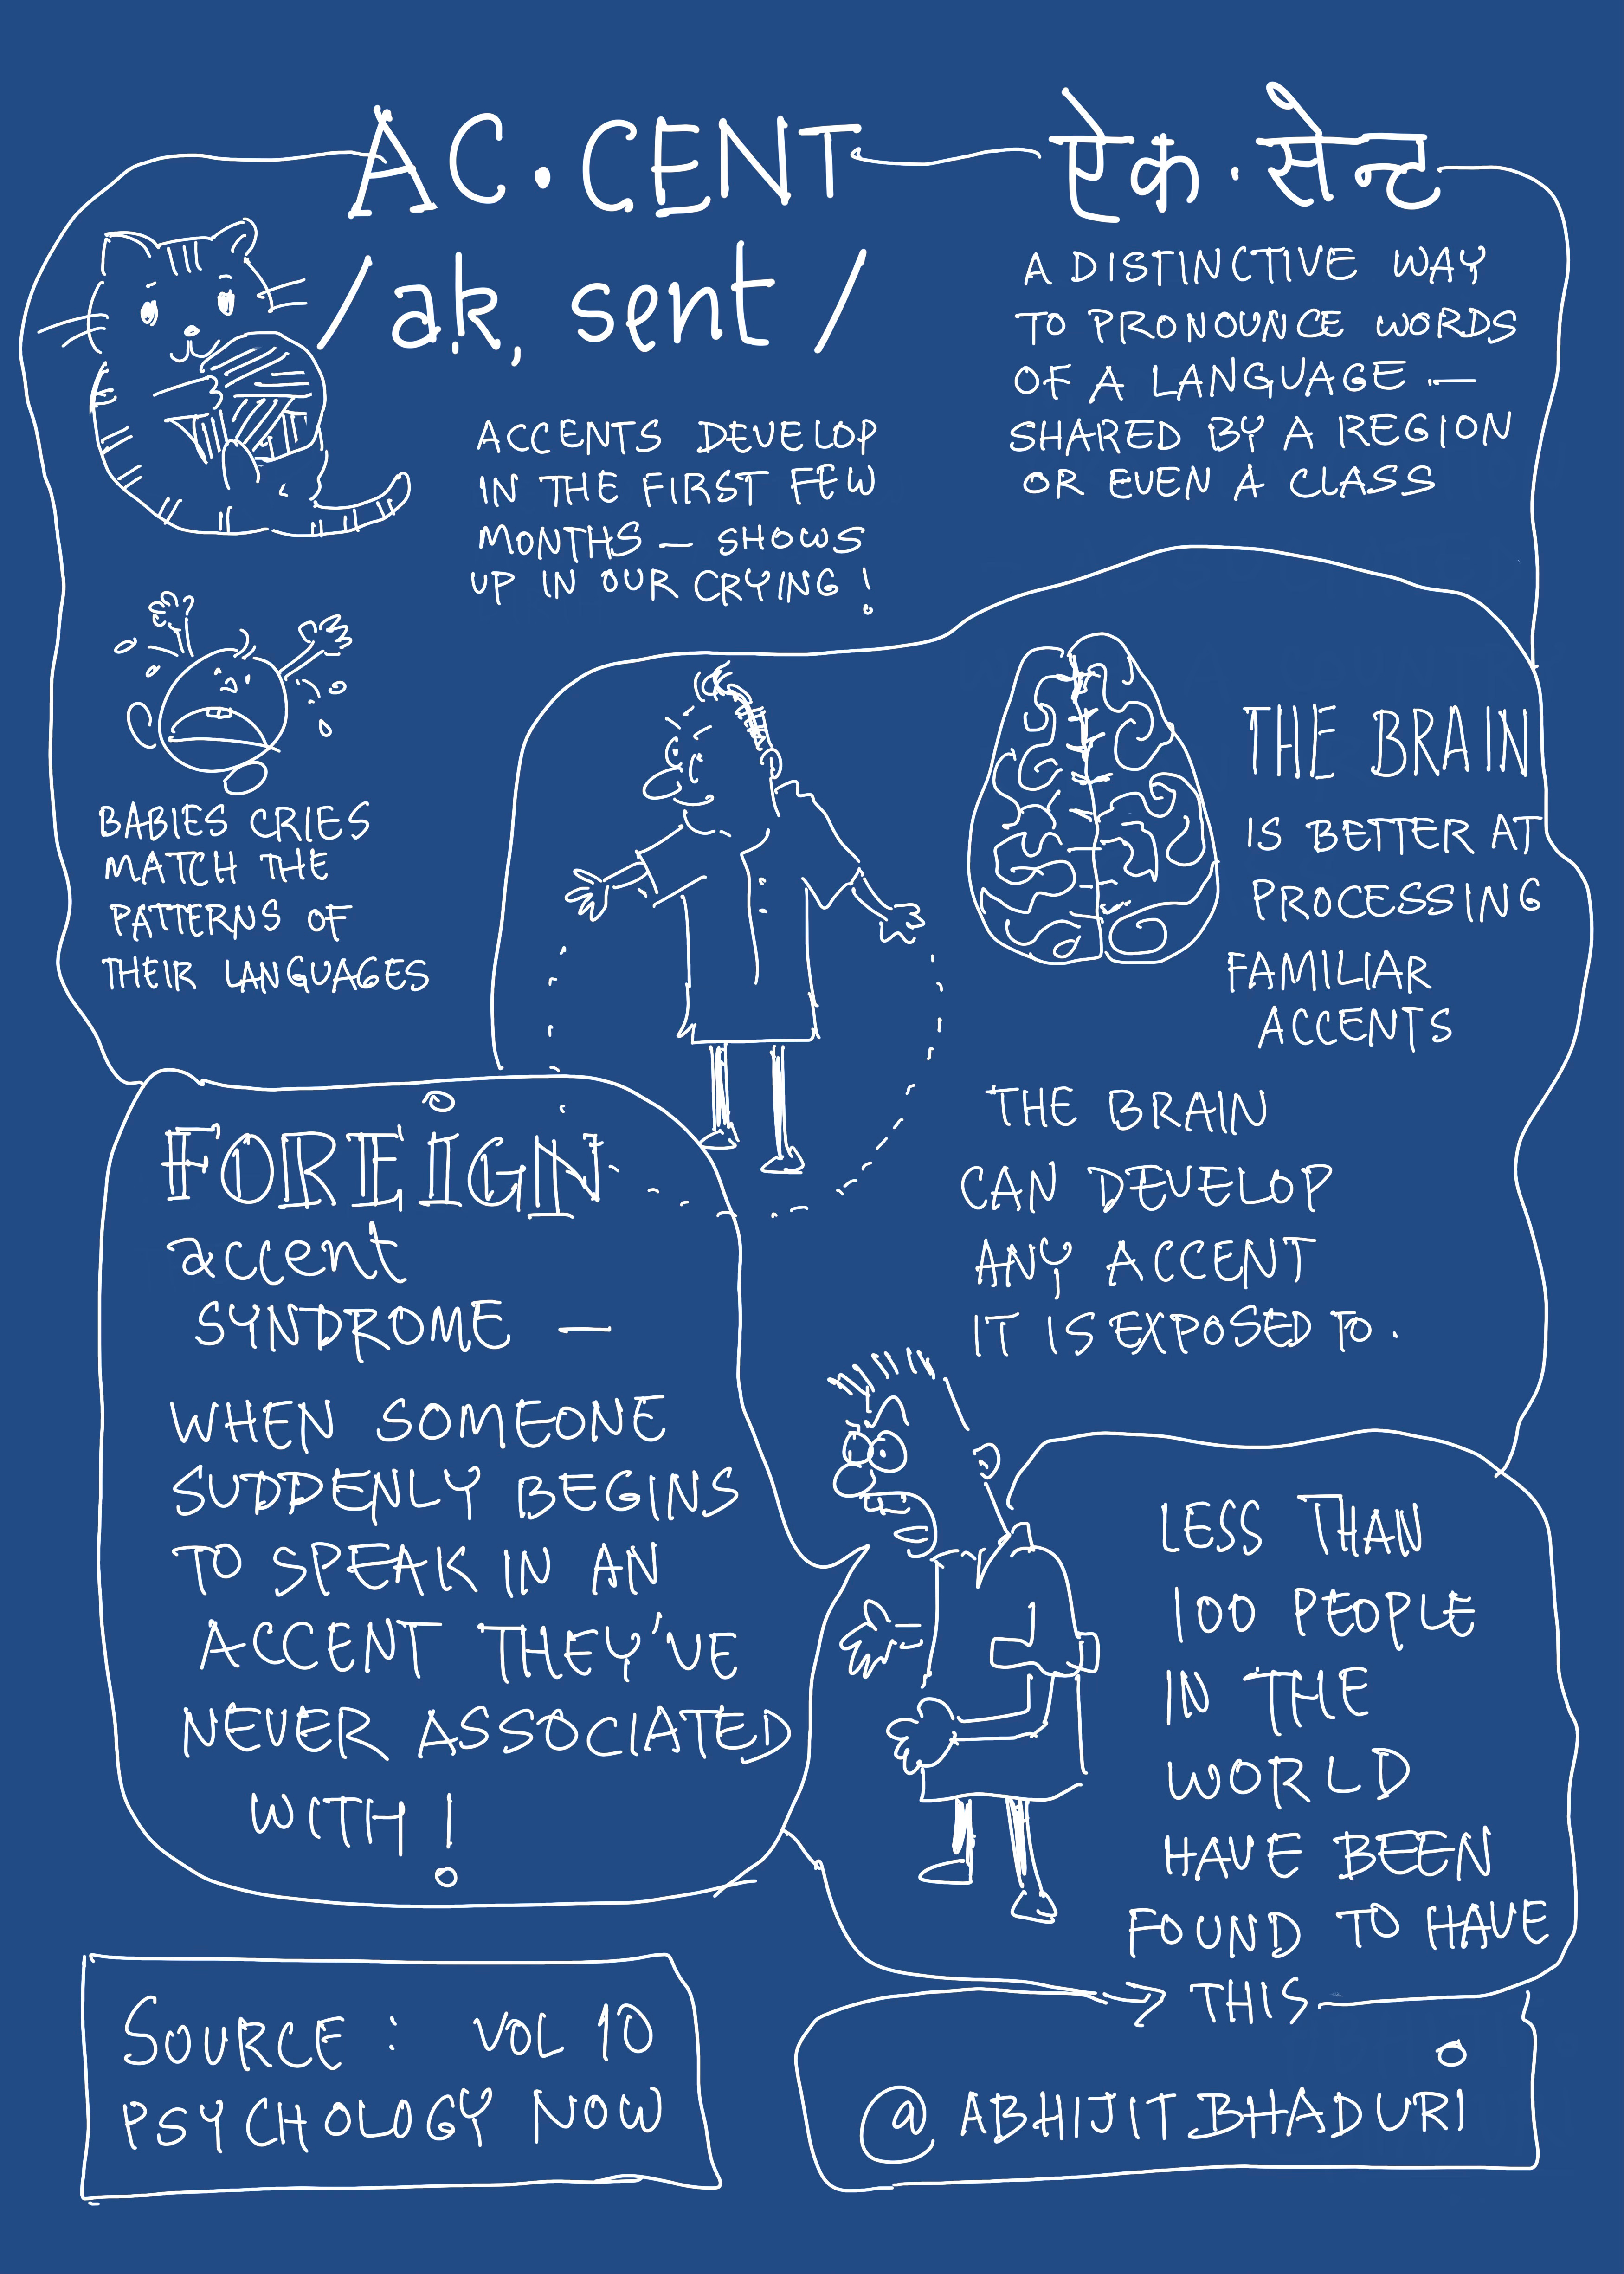 AC·CENT ऐक·सेन्ट
/ak, sent/
A DISTINCTIVE WAY
TO PRONOUNCE WORDS
OF A LANGUAGE —
SHARED BY A REGION
OR EVEN A CLASS
ACCENTS DEVELOP
IN THE FIRST FEW
MONTHS — SHOWS
UP IN OUR CRYING!
BABIES CRIES
MATCH THE
PATTERNS OF
THEIR LANGUAGES
THE BRAIN
IS BETTER AT
PROCESSING
FAMILIAR
ACCENTS
THE BRAIN
CAN DEVELOP
ANY ACCENT
IT IS EXPOSED TO.
FOREIGN
accent
SYNDROME —
WHEN SOMEONE
SUDDENLY BEGINS
TO SPEAK IN AN
ACCENT THEY'VE
NEVER ASSOCIATED
WITH!
LESS THAN
100 PEOPLE
IN THE
WORLD
HAVE BEEN
FOUND TO HAVE
→ THIS
SOURCE: VOL 10
PSYCHOLOGY NOW
@ABHIJIT.BHADURI